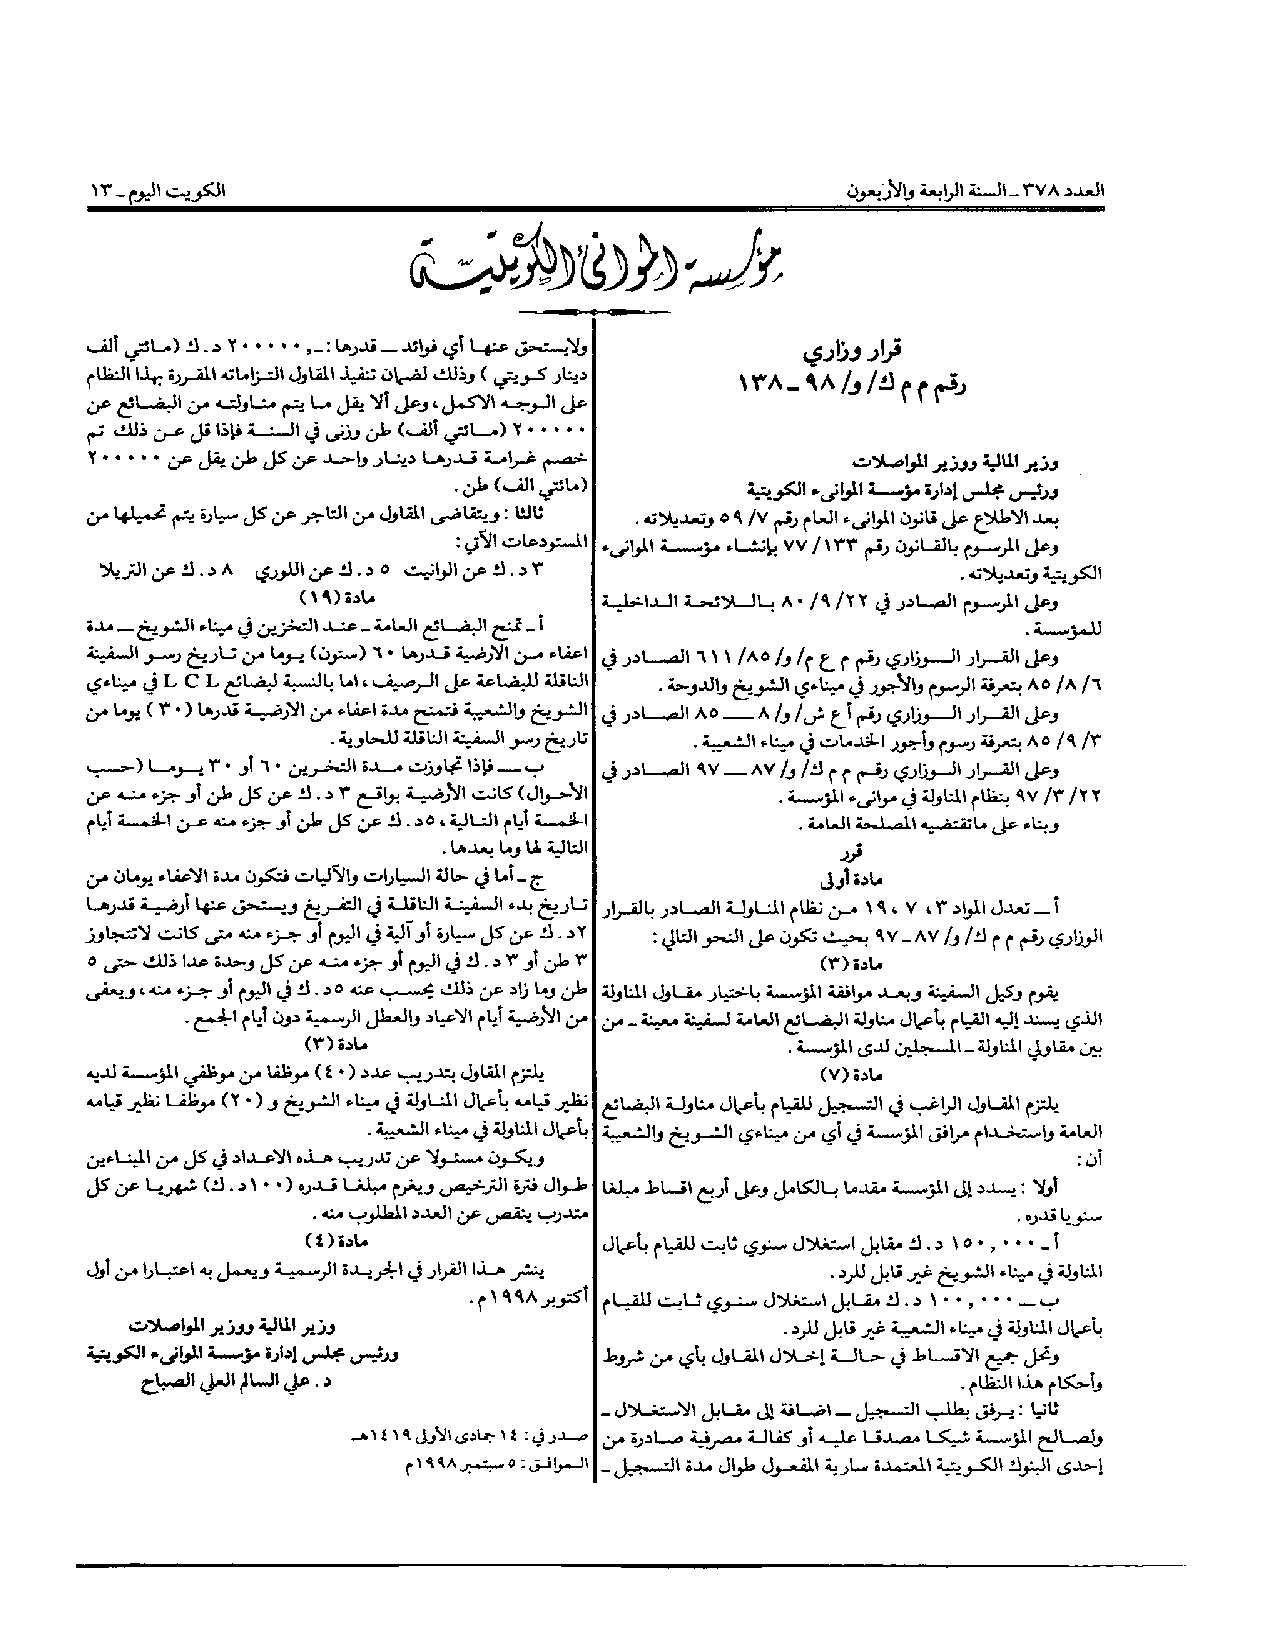 العدد ٣٧٨ - السنة الرابعة والأربعون
الكويت اليوم - ١٣
مؤسسة الموانئ الكويتية
قرار وزاري
رقم م م ك/ و/ ٩٨ - ١٣٨
وزير المالية ووزير المواصلات
ورئيس مجلس إدارة مؤسسة الموانىء الكويتية
بعد الاطلاع على قانون الموانىء العام رقم ٧/ ٥٩ وتعديلاته .
وعلى المرسوم بالقانون رقم ١٣٣/ ٧٧ بإنشاء مؤسسة الموانىء
الكويتية وتعديلاته .
وعلى المرسوم الصادر في ٢٢/ ٩/ ٨٠ باللائحة الداخلية
للمؤسسة .
وعلى القرار الوزاري رقم م ع م/ و/ ٨٥/ ٦١١ الصادر في
٦/ ٨/ ٨٥ بتعرفة الرسوم والأجور في ميناءي الشويخ والدوحة .
وعلى القرار الوزاري رقم أ ع ش/ و/ ٨ — ٨٥ الصادر في
٣/ ٩/ ٨٥ بتعرفة رسوم وأجور الخدمات في ميناء الشعيبة .
وعلى القرار الوزاري رقم م م ك/ و/ ٨٧ — ٩٧ الصادر في
٢٢/ ٣/ ٩٧ بنظام المناولة في موانىء المؤسسة .
وبناء على ماتقتضيه المصلحة العامة .
قرر
مادة أولى
أ — تعدل المواد ٣ ، ٧ ، ١٩ من نظام المناولة الصادر بالقرار
الوزاري رقم م م ك/ و/ ٨٧ - ٩٧ بحيث تكون على النحو التالي :
مادة (٣)
يقوم وكيل السفينة وبعد موافقة المؤسسة باختيار مقاول المناولة
الذي يسند إليه القيام بأعمال مناولة البضائع العامة لسفينة معينة - من
بين مقاولي المناولة - المسجلين لدى المؤسسة .
مادة (٧)
يلتزم المقاول الراغب في التسجيل للقيام بأعمال مناولة البضائع
العامة واستخدام مرافق المؤسسة في أي من ميناءي الشويخ والشعيبة
أن :
أولا : يسدد إلى المؤسسة مقدما بالكامل وعلى أربع اقساط مبلغا
سنويا قدره .
أ - ١٥٠,٠٠٠ د . ك مقابل استغلال سنوي ثابت للقيام بأعمال
المناولة في ميناء الشويخ غير قابل للرد .
ب — ١٠٠,٠٠٠ د . ك مقابل استغلال سنوي ثابت للقيام
بأعمال المناولة في ميناء الشعيبة غير قابل للرد .
وتحل جميع الاقساط في حالة إخلال المقاول بأي من شروط
وأحكام هذا النظام .
ثانيا : يرفق بطلب التسجيل — اضافة إلى مقابل الاستغلال -
ولصالح المؤسسة شيكا مصدقا عليه أو كفالة مصرفية صادرة من
إحدى البنوك الكويتية المعتمدة سارية المفعول طوال مدة التسجيل -
ولايستحق عنها أي فوائد — قدرها : - ,٢٠٠٠٠٠ د . ك (مائتي ألف
دينار كويتي ) وذلك لضمان تنفيذ المقاول التزاماته المقررة بهذا النظام
على الوجه الاكمل ، وعلى ألا يقل ما يتم مناولته من البضائع عن
٢٠٠٠٠٠ (مائتي ألف) طن وزنى في السنة فإذا قل عن ذلك تم
خصم غرامة قدرها دينار واحد عن كل طن يقل عن ٢٠٠٠٠٠
(مائتي الف) طن .
ثالثا : ويتقاضى المقاول من التاجر عن كل سيارة يتم تحميلها من
المستودعات الآتي :
٣ د . ك عن الوانيت ٥ د . ك عن اللوري ٨ د . ك عن التريلا
مادة (١٩)
أ - تمنح البضائع العامة - عند التخزين في ميناء الشويخ — مدة
اعفاء من الأرضية قدرها ٦٠ (ستون) يوما من تاريخ رسو السفينة
الناقلة للبضاعة على الرصيف ، اما بالنسبة لبضائع L C L في ميناءي
الشويخ والشعيبة فتمنح مدة اعفاء من الأرضية قدرها (٣٠ ) يوما من
تاريخ رسو السفينة الناقلة للحاوية .
ب — فإذا تجاوزت مدة التخزين ٦٠ أو ٣٠ يوما (حسب
الأحوال) كانت الأرضية بواقع ٣ د . ك عن كل طن أو جزء منه عن
الخمسة أيام التالية ، ٥د . ك عن كل طن أو جزء منه عن الخمسة أيام
التالية لها وما بعدها .
ج - أما في حالة السيارات والآليات فتكون مدة الاعفاء يومان من
تاريخ بدء السفينة الناقلة في التفريغ ويستحق عنها أرضية قدرها
٢د . ك عن كل سيارة أو آلية في اليوم أو جزء منه متى كانت لاتتجاوز
٣ طن أو ٣ د . ك في اليوم أو جزء منه عن كل وحدة عدا ذلك حتى ٥
طن وما زاد عن ذلك يحسب عنه ٥د . ك في اليوم أو جزء منه ، ويعفى
من الأرضية أيام الاعياد والعطل الرسمية دون أيام الجمع .
مادة (٣)
يلتزم المقاول بتدريب عدد (٤٠) موظفا من موظفي المؤسسة لديه
نظير قيامه بأعمال المناولة في ميناء الشويخ و (٢٠) موظفا نظير قيامه
بأعمال المناولة في ميناء الشعيبة .
ويكون مسئولا عن تدريب هذه الاعداد في كل من الميناءين
طوال فترة الترخيص ويغرم مبلغا قدره (١٠٠د . ك) شهريا عن كل
متدرب ينقص عن العدد المطلوب منه .
مادة (٤)
ينشر هذا القرار في الجريدة الرسمية ويعمل به اعتبارا من أول
أكتوبر ١٩٩٨م .
وزير المالية ووزير المواصلات
ورئيس مجلس إدارة مؤسسة الموانىء الكويتية
د . علي السالم العلي الصباح
صدر في : ١٤ جمادى الأولى ١٤١٩هـ
الموافق : ٥ سبتمبر ١٩٩٨م